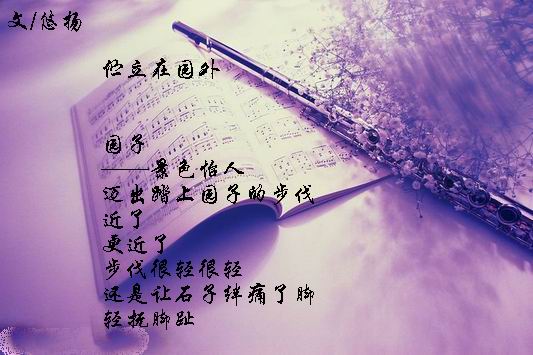 文/悠扬
伫立在园外
园子
——景色怡人
迈出踏上园子的步伐
近了
更近了
步伐很轻很轻
还是让石子绊痛了脚
轻抚脚趾